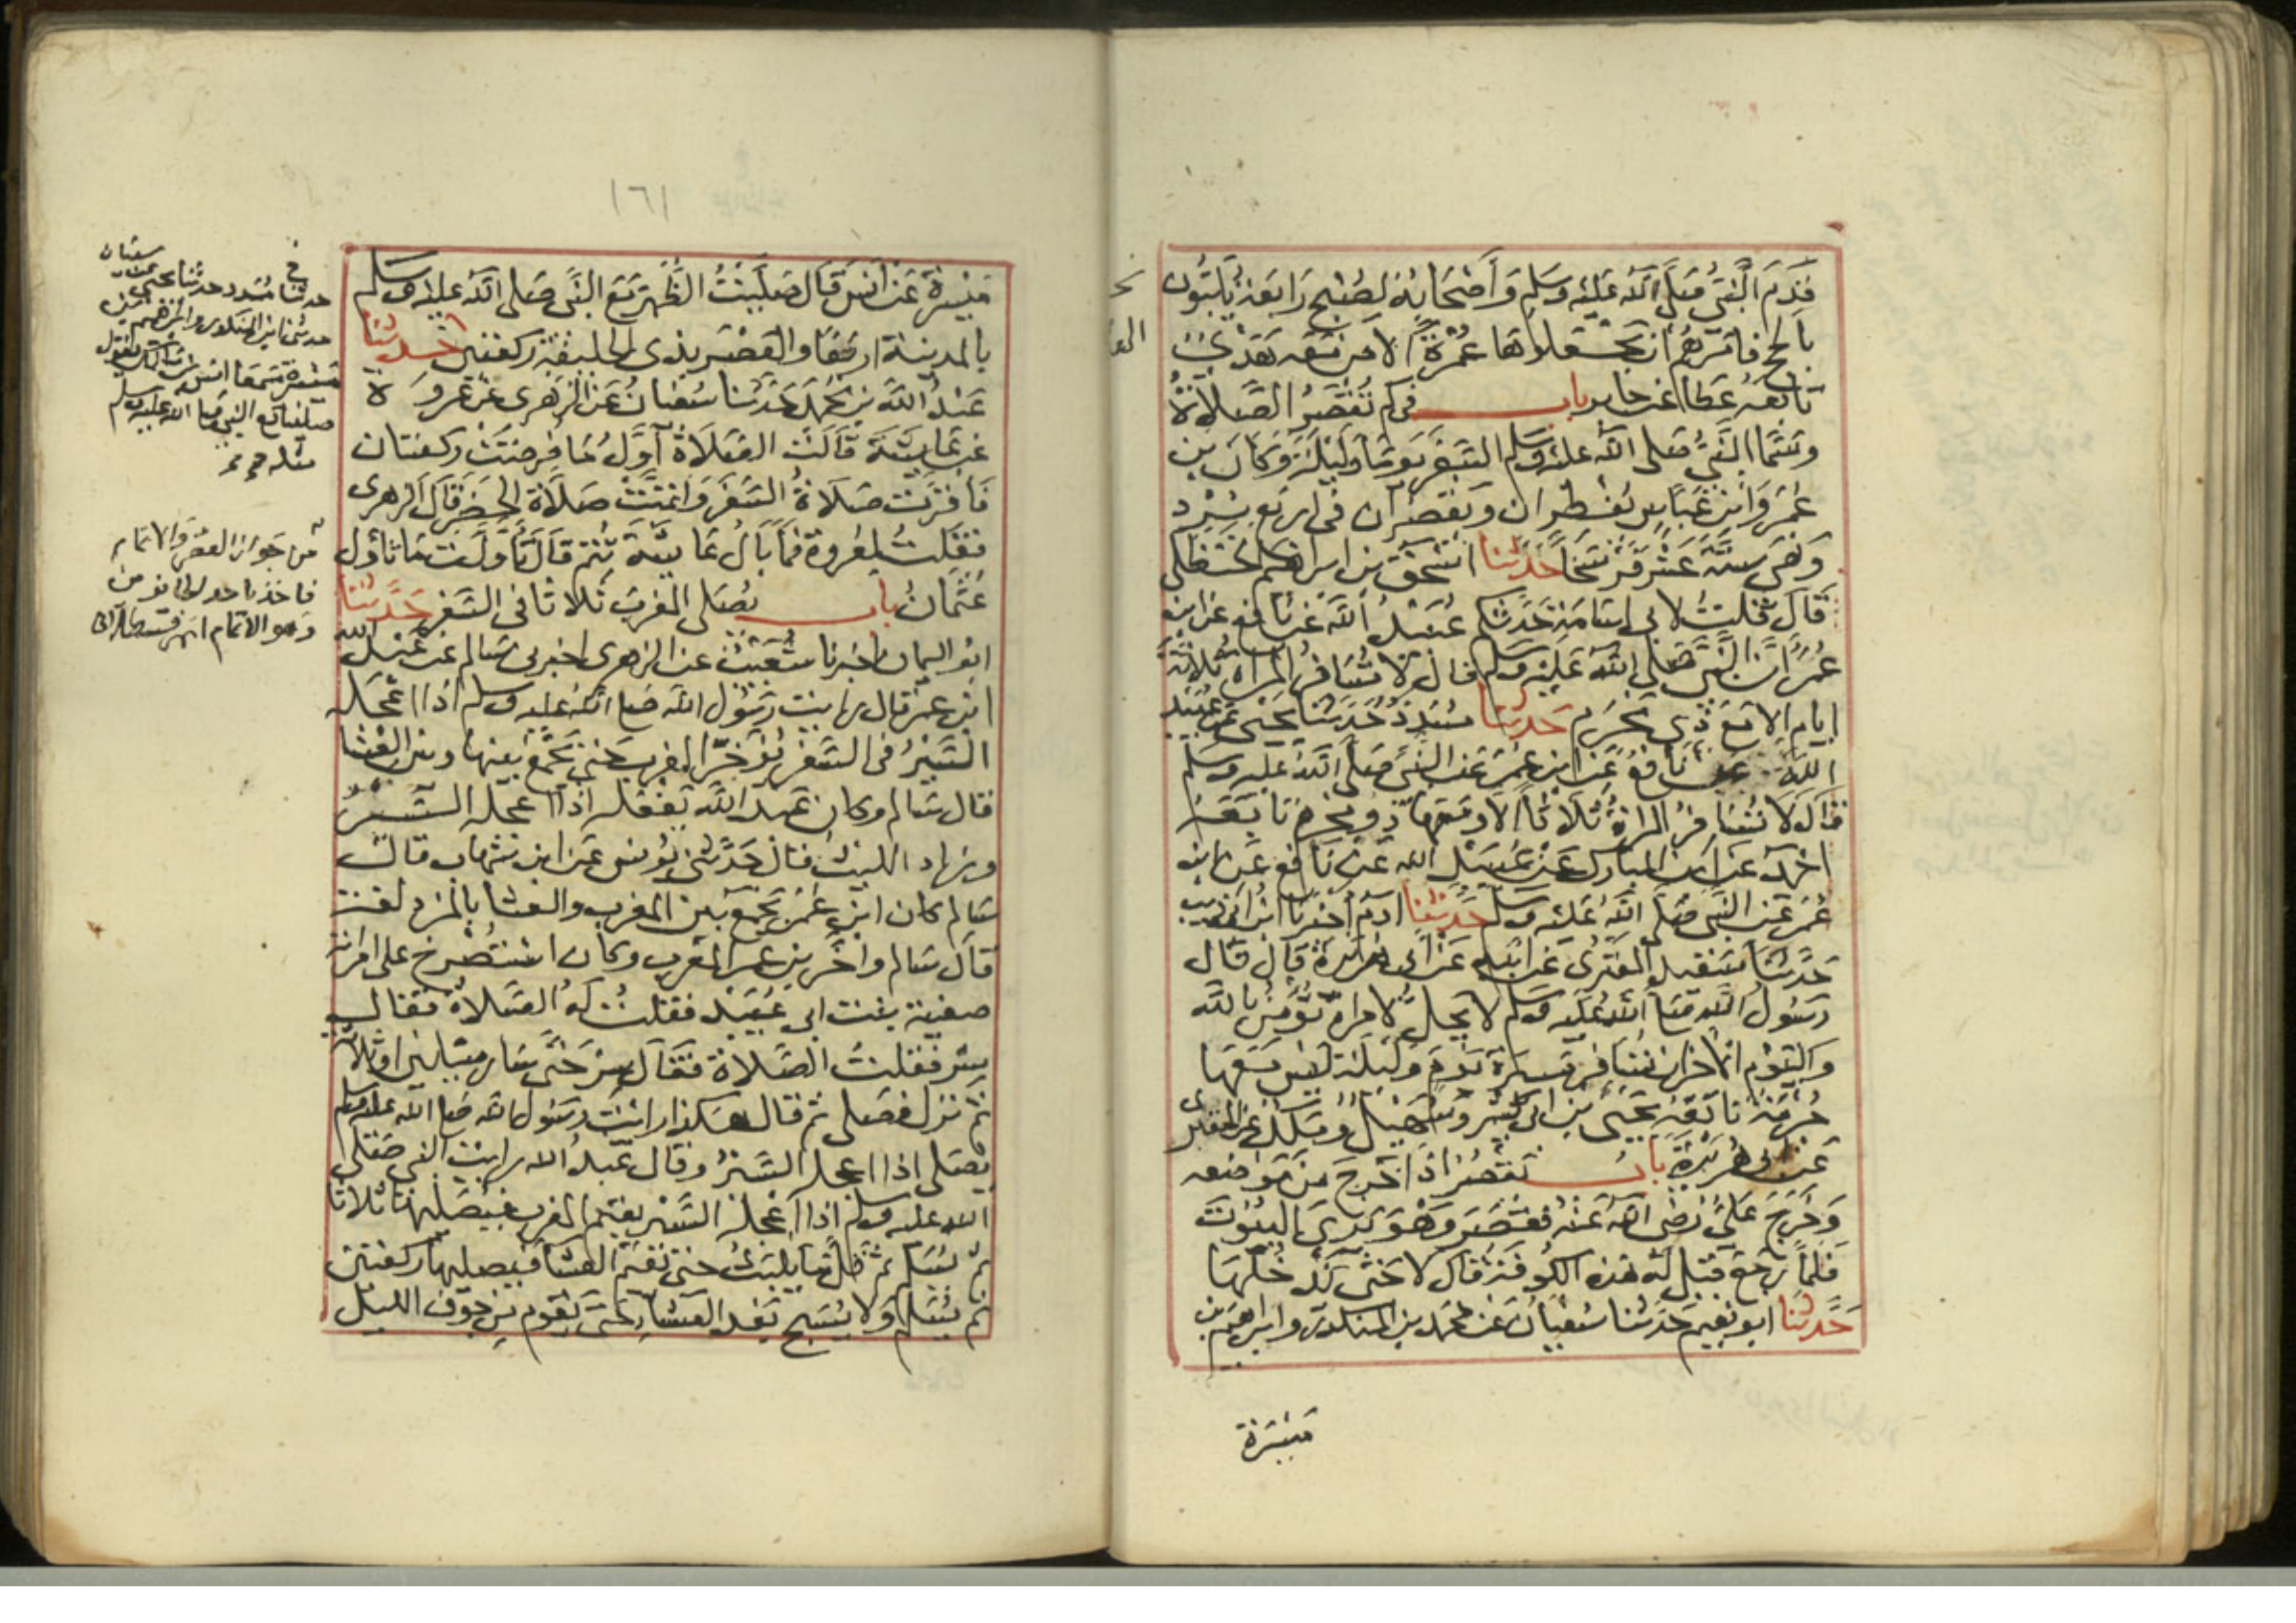 قدم النبي صلى الله عليه وسلم وأصحابه لصبح رابعة يلبون
بالحج فامرهم ان يجعلوها عمرة الا من معه هدي
تابعه عطا عن جابر باب في كم تقصر الصلاة
وسمى النبي صلى الله عليه وسلم السفر يوما وليلة وكان بن
عمر وابن عباس يفطران ويقصران في اربع برد
وهي ستة عشر فرسخا حدثنا اسحق بن ابراهيم الحنظلي
قال قلت لابي اسامة حدثكم عبيد الله عن نافع عن ابن
عمر ان النبي صلى الله عليه وسلم قال لا تسافر المراة ثلاثة
ايام الا مع ذي محرم حدثنا مسدد حدثنا يحيى عن عبيد
الله عن نافع عن ابن عمر عن النبي صلى الله عليه وسلم
قال لا تسافر المراة ثلاثا الا ومعها ذو محرم تابعه
احمد عن ابن المبارك عن عبيد الله عن نافع عن ابن
عمر عن النبي صلى الله عليه وسلم حدثنا ادم اخبرنا ابن ابي ذيب
حدثنا سعيد المقبري عن ابيه عن ابي هريرة قال قال
رسول الله صلى الله عليه وسلم لا يحل لامراة تؤمن بالله
واليوم الاخر ان تسافر مسيرة يوم وليلة ليس معها
حرمة تابعه يحيى بن ابي كثير وسهيل ومالك عن المقبري
عن ابي هريرة باب تقصر اذا خرج من موضعه
وخرج علي رضي الله عنه فقصر وهو يرى البيوت
فلما رجع قيل له هذه الكوفة قال لا حتى ندخلها
حدثنا ابو نعيم حدثنا سفيان عن محمد بن المنكدر وابراهيم بن
ميسرة
١٦١
ميسرة عن انس قال صليت الظهر مع النبي صلى الله عليه وسلم
بالمدينة اربعا والعصر بذي الحليفة ركعتين حدثنا
عبد الله بن محمد حدثنا سفيان عن الزهري عن عروة
عن عايشة قالت الصلاة اول ما فرضت ركعتان
فاقرت صلاة السفر واتمت صلاة الحضر قال الزهري
فقلت لعروة فما بال عايشة تتم قال تاولت ما تاول
عثمان باب يصلى المغرب ثلاثا في السفر حدثنا
ابو اليمان اخبرنا شعيب عن الزهري اخبرني سالم عن عبد الله
ابن عمر قال رايت رسول الله صلى الله عليه وسلم اذا اعجله
السير في السفر يؤخر المغرب حتى يجمع بينها وبين العشا
قال سالم وكان عبد الله يفعله اذا اعجله السير
وزاد الليث قال حدثني يونس عن ابن شهاب قال
سالم كان ابن عمر يجمع بين المغرب والعشا بالمزدلفة
قال سالم واخر بن عمر المغرب وكان استصرخ على امراته
صفية بنت ابي عبيد فقلت له الصلاة فقال
سر فقلت الصلاة فقال سر حتى سار ميلين او ثلاثة
ثم نزل فصلى ثم قال هكذا رايت رسول الله صلى الله عليه وسلم
يصلي اذا اعجله السير وقال عبد الله رايت النبي صلى
الله عليه وسلم اذا اعجله السير يقيم المغرب فيصليها ثلاثا
ثم يسلم ثم قل ما يلبث حتى يقيم العشا فيصليها ركعتين
ثم يسلم ولا يسبح بعد العشا حتى يقوم من جوف الليل
حدثنا مسدد حدثنا يحيى عن سفيان
حدثنا ابن المنكدر وابراهيم بن
ميسرة سمعا انس بن مالك يقول
صلينا مع النبي صلى الله عليه وسلم
مثله
من جواز القصر والاتمام
فاخذ باحد الجانبين
وهو الاتمام اهـ قسطلاني